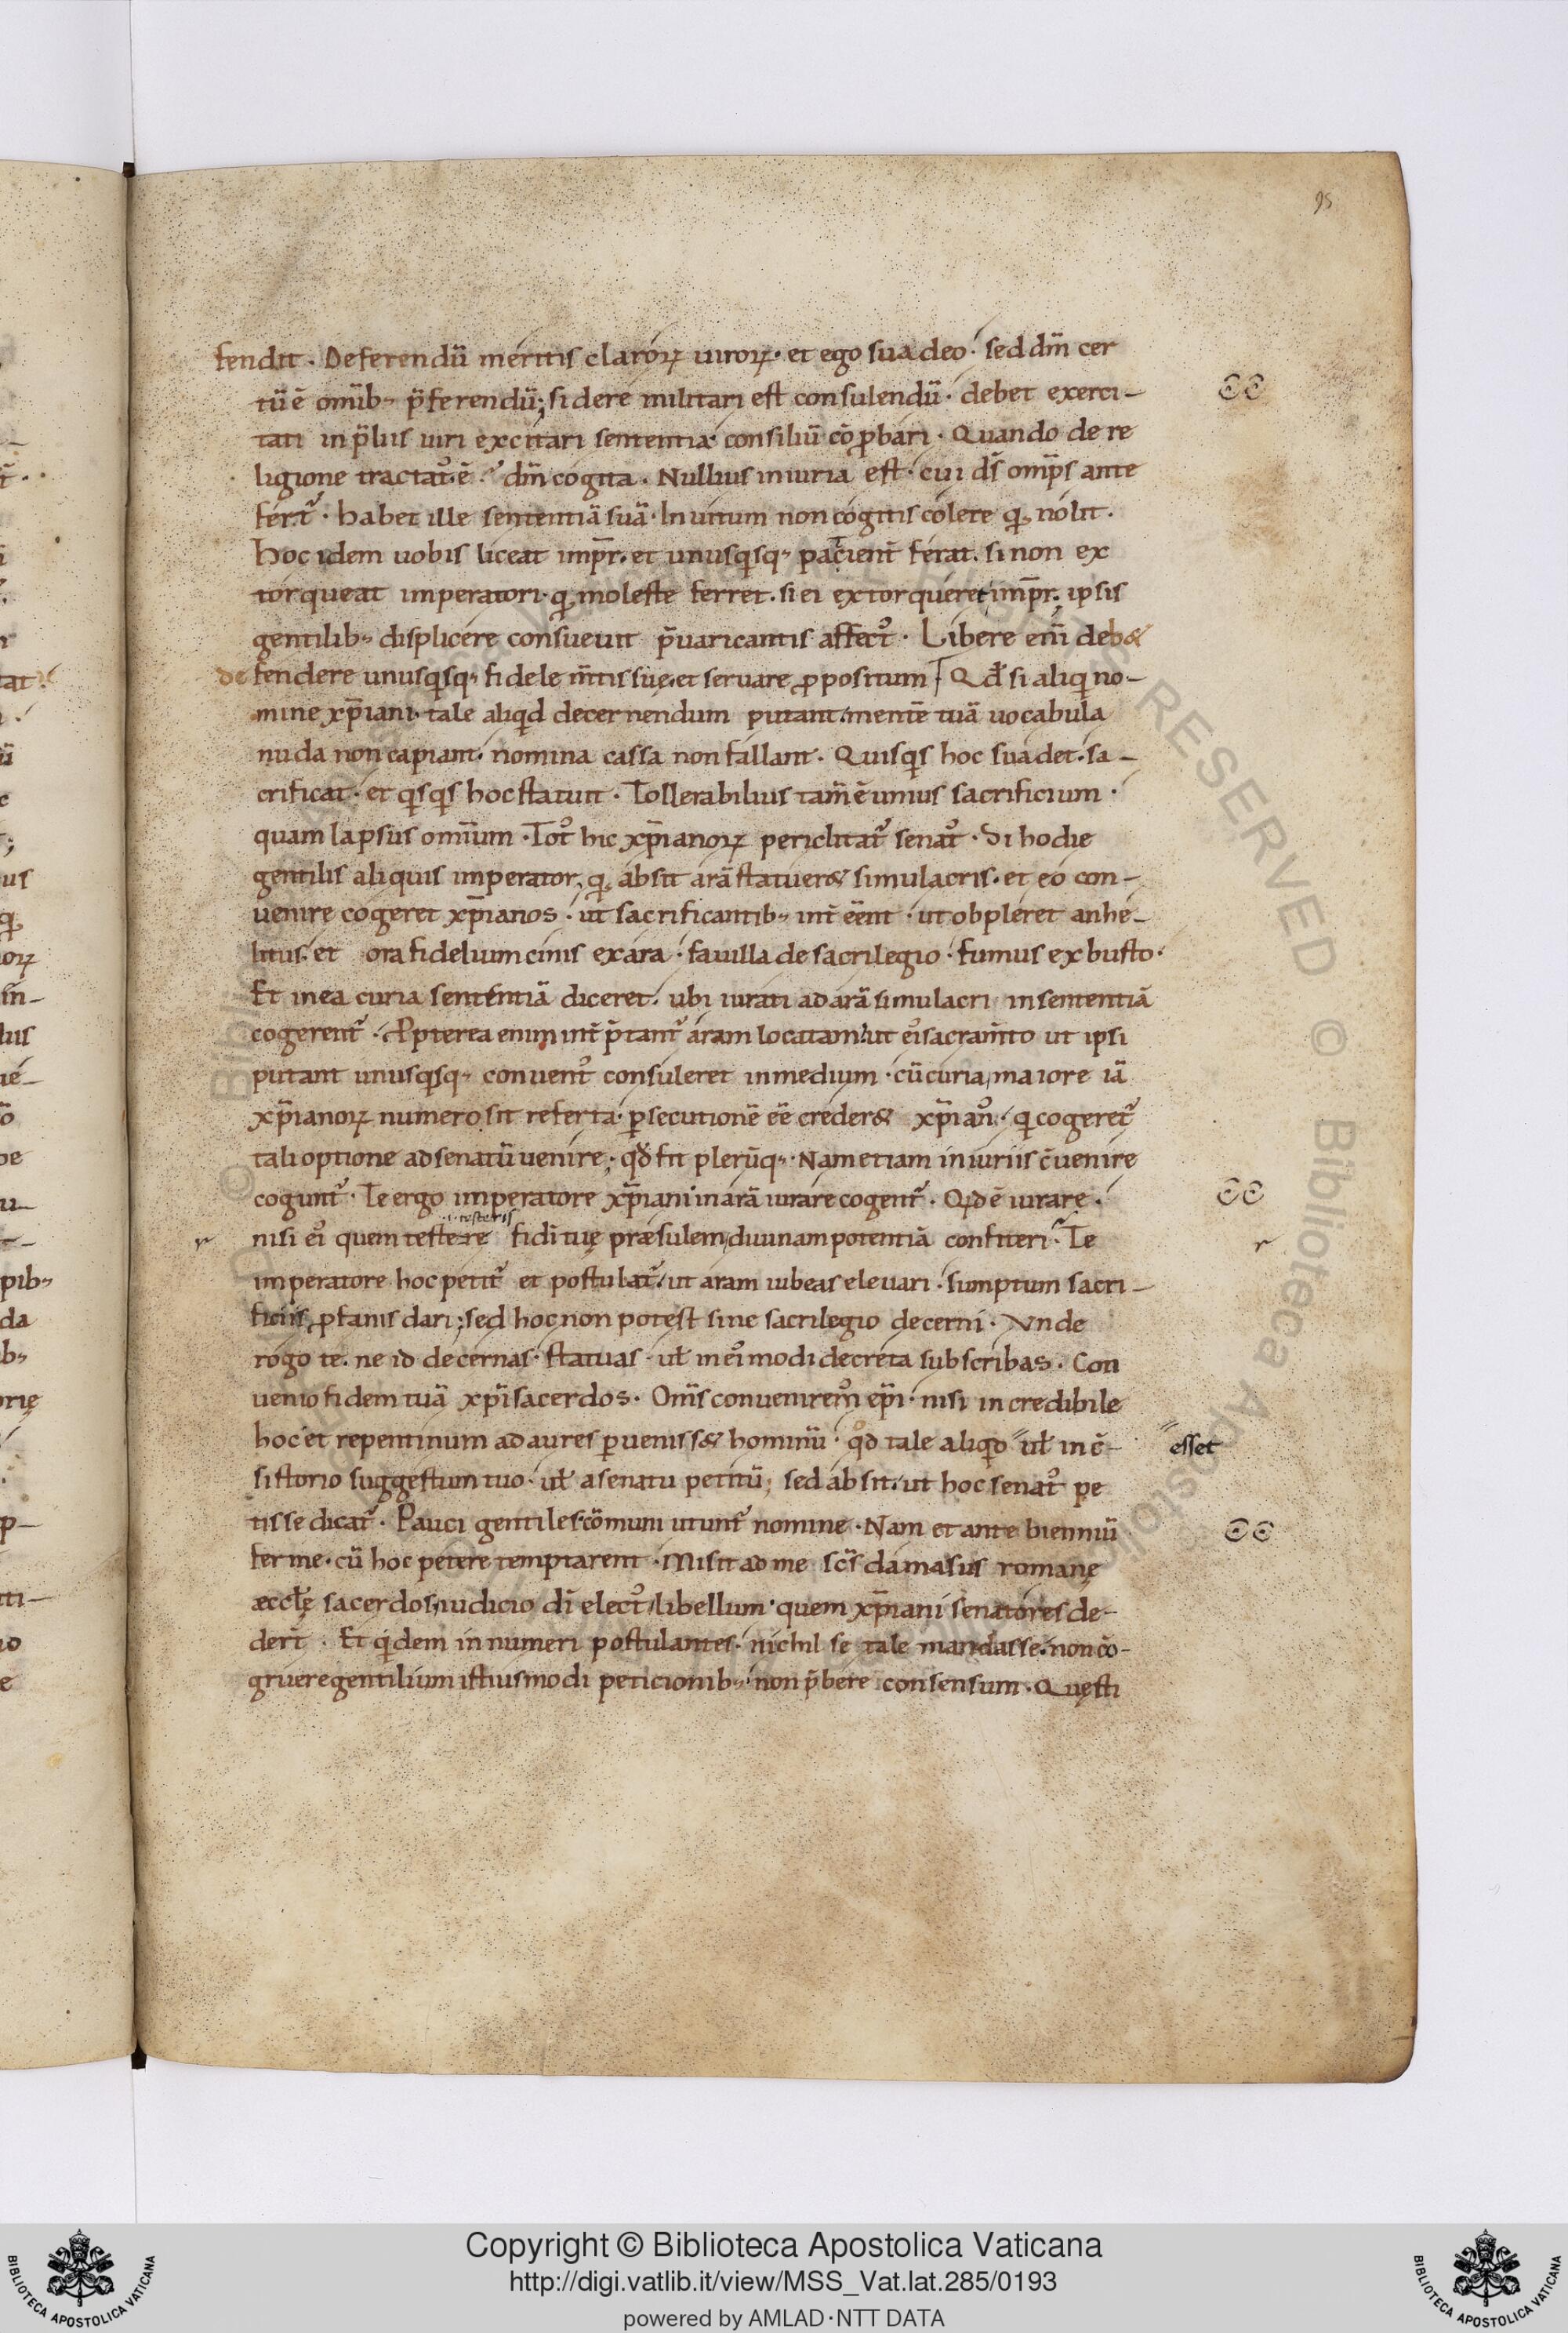 95
fendit · Deferendũ meritis claroꝝ uiroꝝ · et ego suadeo · sed dm̃ cer
tũ ẽ omĩb; p̃ferendũ; si de re militari est consulendũ · debet exerci-
tati in p̃liis uiri excitari sententia · consiliũ cõꝓbari · Quando de re
ligione tractat᷒ ẽ · dm̃ cogita · Nullius iniuria est · cui ds̃ omp̃s ante
fert᷒ · habet ille sententiã suã · Inuitum non cogitis colere q̣ nolit ·
hoc idem uobis liceat imp̃r · et unusqisq; pacient̃ ferat · si non ex
torqueat imperatori · q̣ moleste ferret · si ei extorqueret imp̃r · ipsis
gentilib; displicere consueuit p̃uaricantis affect᷒ · Libere eni᷒ deb&
defendere unusqisq; fidele m̃tis suę · et seruare ꝓpositum Qđ si aliqi no-
mine xp̃iani · tale aliqid decernendum putant · mentẽ tuã uocabula
nuda non capiant · nomina cassa non fallant · Quisqis hoc suadet · sa-
crificat · et qisqis hoc statuit · Tollerabilius tam̃ ẽ unius sacrificium ·
quam lapsus omĩum · Tot᷒ hic xp̃ianoꝝ periclitat᷒ senat᷒ · Si hodie
gentilis aliquis imperator, q̣ absit arã statuer& simulacris · et eo con-
uenire cogeret xp̃ianos · ut sacrificantib; int̃ eẽnt · ut obpleret anhe-
litus · et ora fidelium cinis ex ara · fauilla de sacrilegio · fumus ex busto ·
Et in ea curia sententiã diceret · ubi iurati ad arã simulacri in sententiã
cogerent᷒ · Ꝓpterea enim int̃p̃tant᷒ aram locatam · ut ei᷒ sacram̃to ut ipsi
putant unusqisq; conuent᷒ consuleret in medium · cũ curia, maiore iã
xp̃ianoꝝ numero sit referta · ꝑsecutionẽ eẽ creder& xp̃ian᷒ · qi cogeret᷒
tali optione ad senatũ uenire · qđ fit plerũq; · Nam etiam iniuriis c̃uenire
cogunt᷒ · Te ergo imperatore xp̃iani in arã iurare cogent᷒ · Qid ẽ iurare ·
·i· testeris
nisi ei᷒ quem testere fidi tuę præsulem, diuinam potentiã confiteri · Te
imperatore hoc petit᷒ et postulat᷒ · ut aram iubeas eleuari · sumptum sacri-
ficiis ꝓfanis dari; sed hoc non potest sine sacrilegio decerni · Vnde
rogo te · ne id decernas · statuas · ul̃ in ei᷒modi decreta subscribas · Con
uenio fidem tuã xp̃i sacerdos · Omĩs conueniremᷓ ep̃i · nisi incredibile
hoc et repentinum ad aures ꝑueniss& hominũ · qod tale aliqid ul̃ in c̃-
esset
sistorio suggestum tuo · ul̃ a senatu petitũ, sed absit · ut hoc senat᷒ pe
tisse dicat᷒ · Pauci gentiles cõmuni utunt᷒ nomine · Nam et ante bienniũ
ferme · cũ hoc petere temptarent · Misit ad me sc̃s damasus romanę
æccl̃ę sacerdos, iudicio di᷒ elect᷒, libellum · quem xp̃iani senatores de-
dert̃ · Et qidem innumeri postulantes · nichil se tale mandasse · non cõ-
gruere gentilium istiusmodi peticionib; · non p̃bere consensum · Quęsti
Copyright © Biblioteca Apostolica Vaticana
http://digi.vatlib.it/view/MSS_Vat.lat.285/0193
powered by AMLAD·NTT DATA